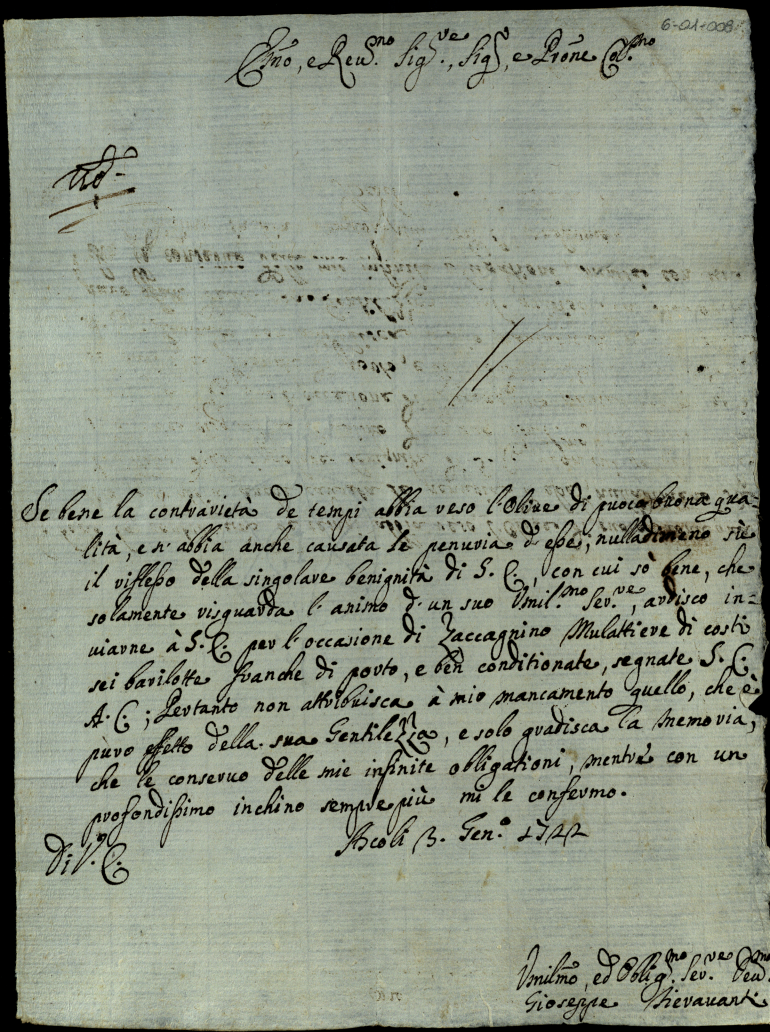 6-01-008
Em̃o, e Reu.mo Sig.re, Sig.r, e Prōne Col.mo
Se bene la contrarietà de tempi abbia reso l'Oliue di puoca buona qua-
lità, e n'abbia anche causata le penuria d'esse; nulladimeno sù
il riflesso della singolare benignità di S. E., con cui sò bene, che
solamente risguarda l'animo d'un suo Vmil.mo Ser.re, ardisco in-
uiarne à S. E. per l'occasione di Zaccagnino Mulattiere di costì
sei barilotte franche di porto, e ben conditionate, segnate S. E.
A. C.; Pertanto non attribuisca à mio mancamento quello, che è
puro effetto della sua Gentilezza, e solo gradisca la memoria,
che le conseruo delle mie infinite obligationi, mentre con un
profondissimo inchino sempre più mi le confermo.
Di V. E. Ascoli 3. Gen.o 1722
Vmilm̃o, ed Oblig.mo Ser.re Deu.mo
Gioseppe